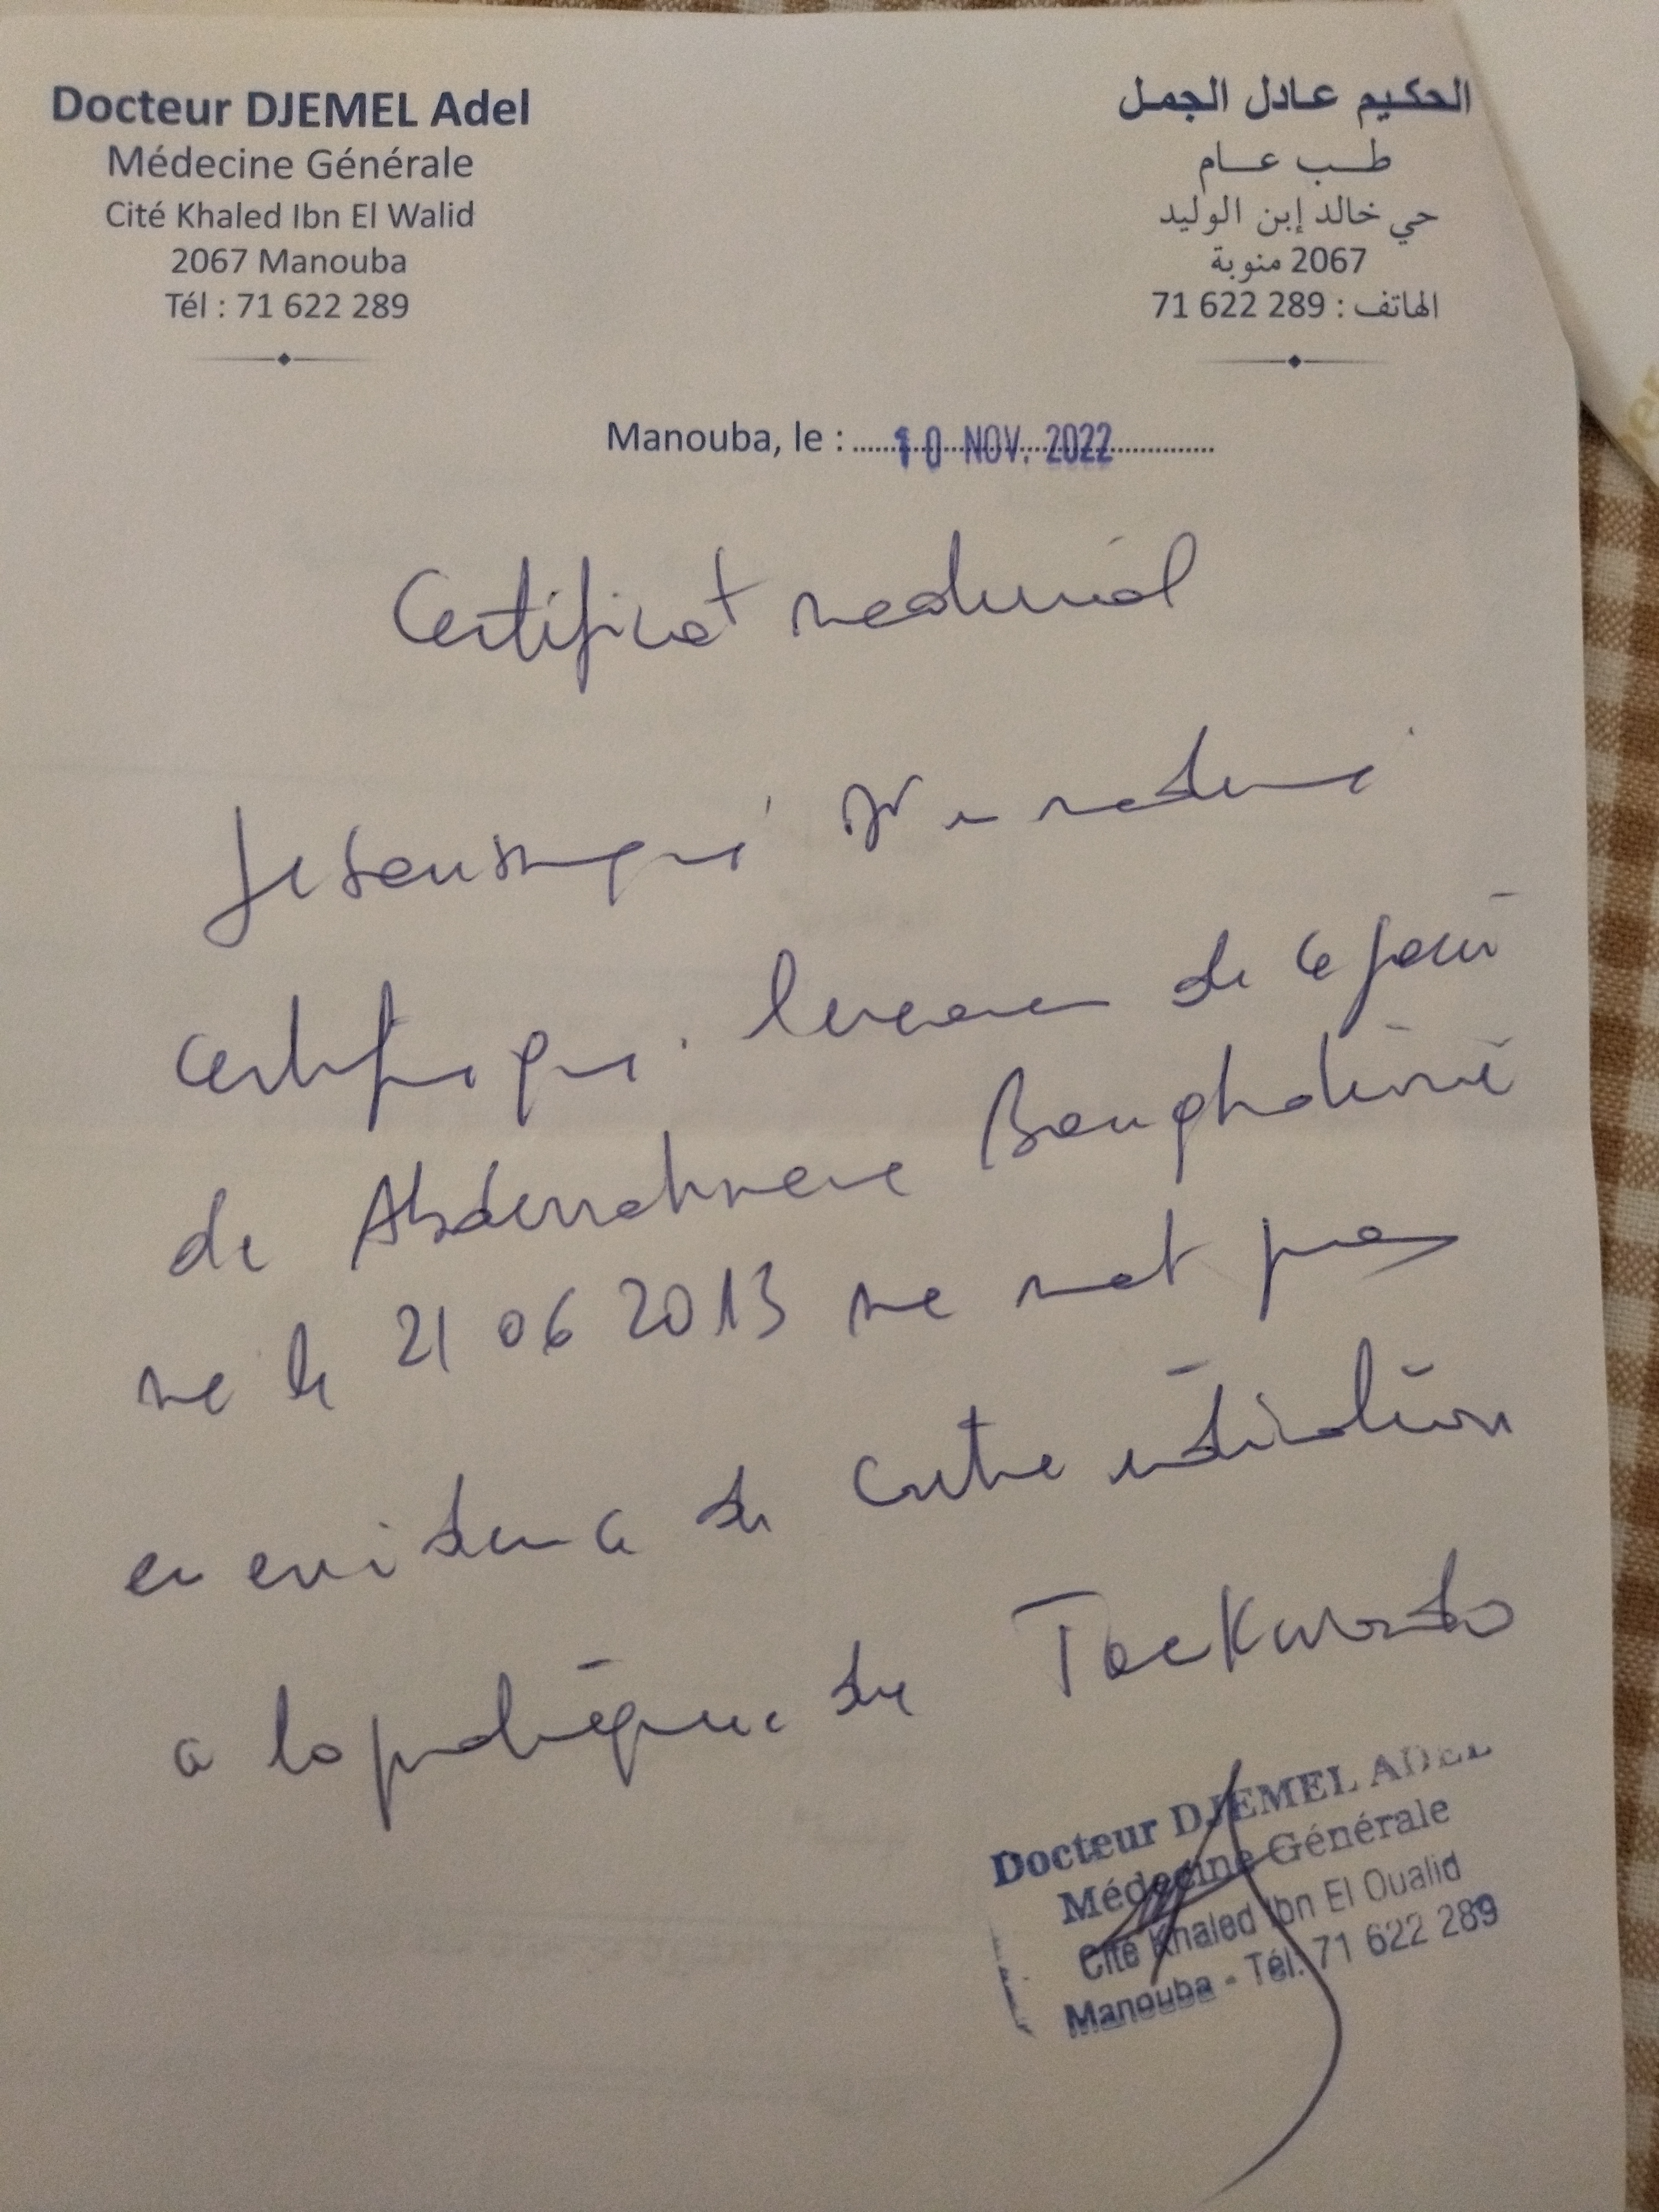 Docteur DJEMEL Adel
Médecine Générale
Cité Khaled Ibn El Walid
2067 Manouba
Tél : 71 622 289
الحكيم عادل الجمل
طب عام
حي خالد إبن الوليد
2067 منوبة
الهاتف : 71 622 289
Manouba, le : 10 NOV. 2022
Certificat medical
Je soussigné Dr en medecine
certifie que l'examen de ce jour
de Abderrahmene Boughdiri
né le 21 06 2013 ne met pas
en evidence de contre indication
a la pratique du Taekwondo
Docteur DJEMEL ADEL
Médecine Générale
Cité Khaled Ibn El Oualid
Manouba - Tél: 71 622 289